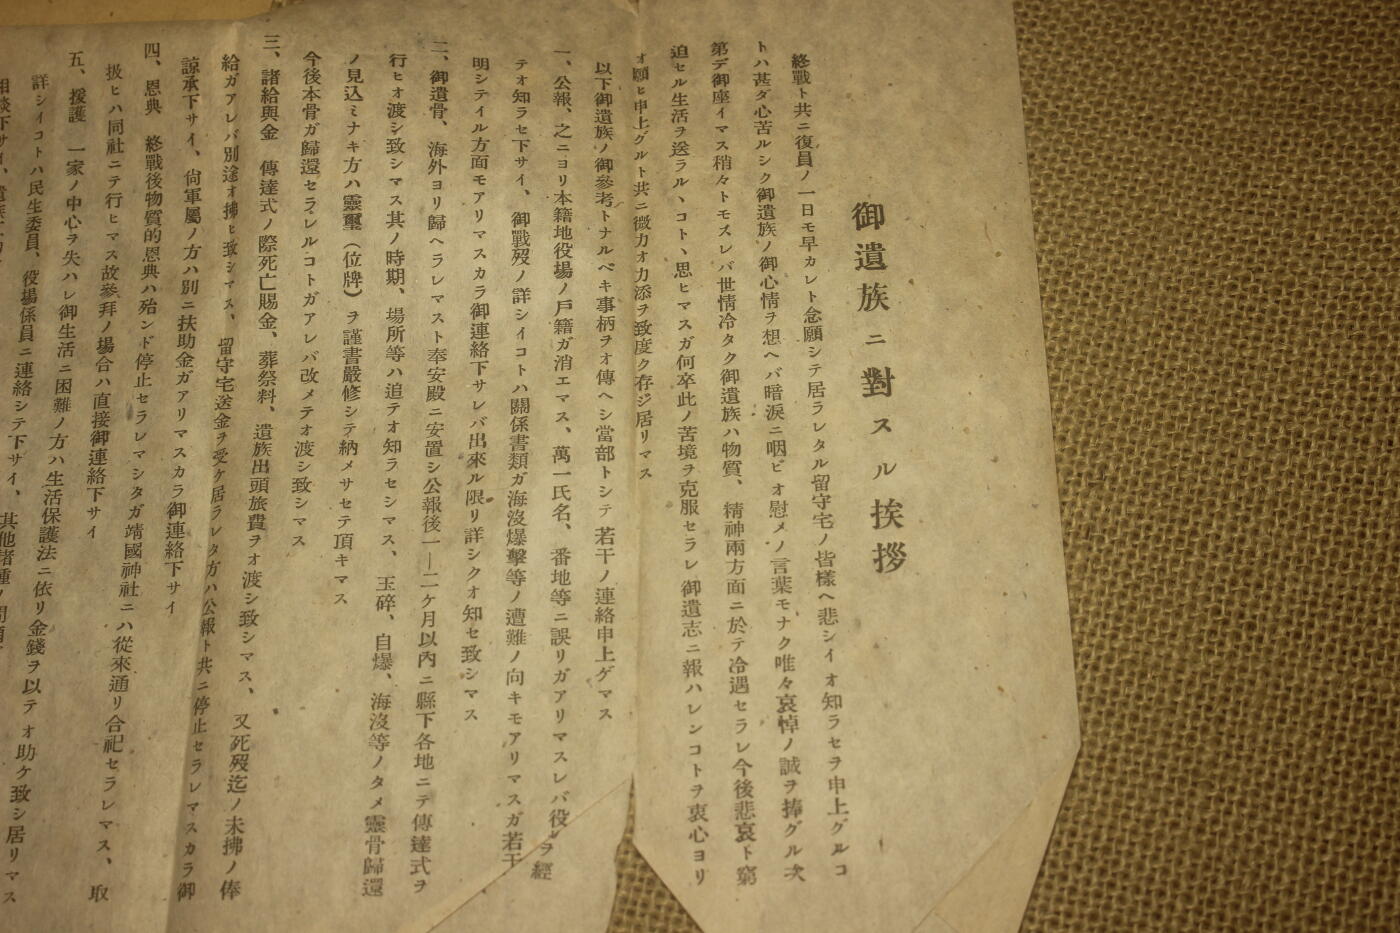 御遺族ニ對スル挨拶
終戰ト共ニ復員ノ一日モ早カレト念願シテ居ラレタル留守宅ノ皆樣ヘ悲シイオ知ラセヲ申上グルコ
トハ甚ダ心苦ルシク御遺族ノ御心情ヲ想ヘバ暗淚ニ咽ビオ慰メノ言葉モナク唯々哀悼ノ誠ヲ捧グル次
第デ御座イマス稍々トモスレバ世情冷タク御遺族ハ物質、精神兩方面ニ於テ冷遇セラレ今後悲哀ト窮
迫セル生活ヲ送ラルヽコトヽ思ヒマスガ何卒此ノ苦境ヲ克服セラレ御遺志ニ報ハレンコトヲ衷心ヨリ
オ願ヒ申上グルト共ニ微力オ力添ヲ致度ク存ジ居リマス
以下御遺族ノ御參考トナルベキ事柄ヲオ傳ヘシ當部トシテ若干ノ連絡申上ゲマス
一、公報、之ニヨリ本籍地役場ノ戶籍ガ消エマス、萬一氏名、番地等ニ誤リガアリマスレバ役ヲ經
テオ知ラセ下サイ、御戰歿ノ詳シイコトハ關係書類ガ海沒爆擊等ノ遭難ノ向キモアリマスガ若干
明シテイル方面モアリマスカラ御連絡下サレバ出來ル限リ詳シクオ知セ致シマス
二、御遺骨、海外ヨリ歸ヘラレマスト奉安殿ニ安置シ公報後一―二ケ月以內ニ縣下各地ニテ傳達式ヲ
行ヒオ渡シ致シマス其ノ時期、場所等ハ追テオ知ラセシマス、玉碎、自爆、海沒等ノタメ靈骨歸還
ノ見込ミナキ方ハ靈璽(位牌)ヲ謹書嚴修シテ納メサセテ頂キマス
今後本骨ガ歸還セラレルコトガアレバ改メテオ渡シ致シマス
三、諸給與金 傳達式ノ際死亡賜金、葬祭料、遺族出頭旅費ヲオ渡シ致シマス、又死歿迄ノ未拂ノ俸
給ガアレバ別途オ拂ヒ致シマス、留守宅送金ヲ受ケ居ラレタ方ハ公報ト共ニ停止セラレマスカラ御
諒承下サイ、尙軍屬ノ方ハ別ニ扶助金ガアリマスカラ御連絡下サイ
四、恩典 終戰後物質的恩典ハ殆ンド停止セラレマシタガ靖國神社ニハ從來通リ合祀セラレマス、取
扱ヒハ同社ニテ行ヒマス故參拜ノ場合ハ直接御連絡下サイ
五、援護 一家ノ中心ヲ失ハレ御生活ニ困難ノ方ハ生活保護法ニ依リ金錢ヲ以テオ助ケ致シ居リマス
詳シイコトハ民生委員、役場係員ニ連絡シテ下サイ、其他諸種ノ
相談下サイ、遺族